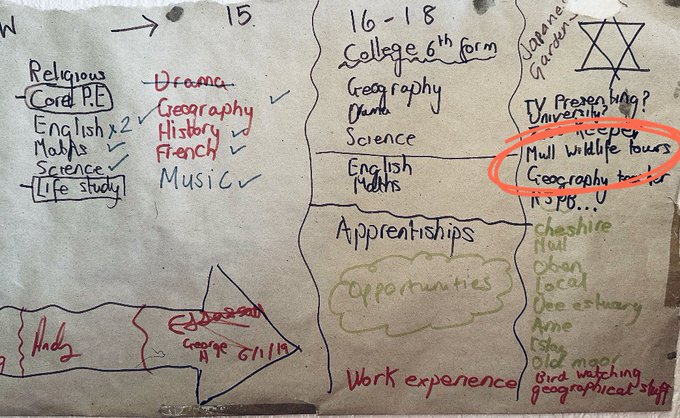 W
15.
Religious
Core P.E
English x2
Maths
Science
Life study
Drama
Geography
History
French
Music
Andy
George
A 6/1/19
16-18
College 6th form
Geography
Drama
Science
English
Maths
Apprentiships
Opportunities
Work experience
Japanese
Garden
TV Presenting?
University?
Keeper
Mull Wildlife tours
Geography teacher
RSPB...
cheshire
Mull
Oban
Local
Dee estuary
Arne
Islay
Old moor
Bird watching
geographical stuff